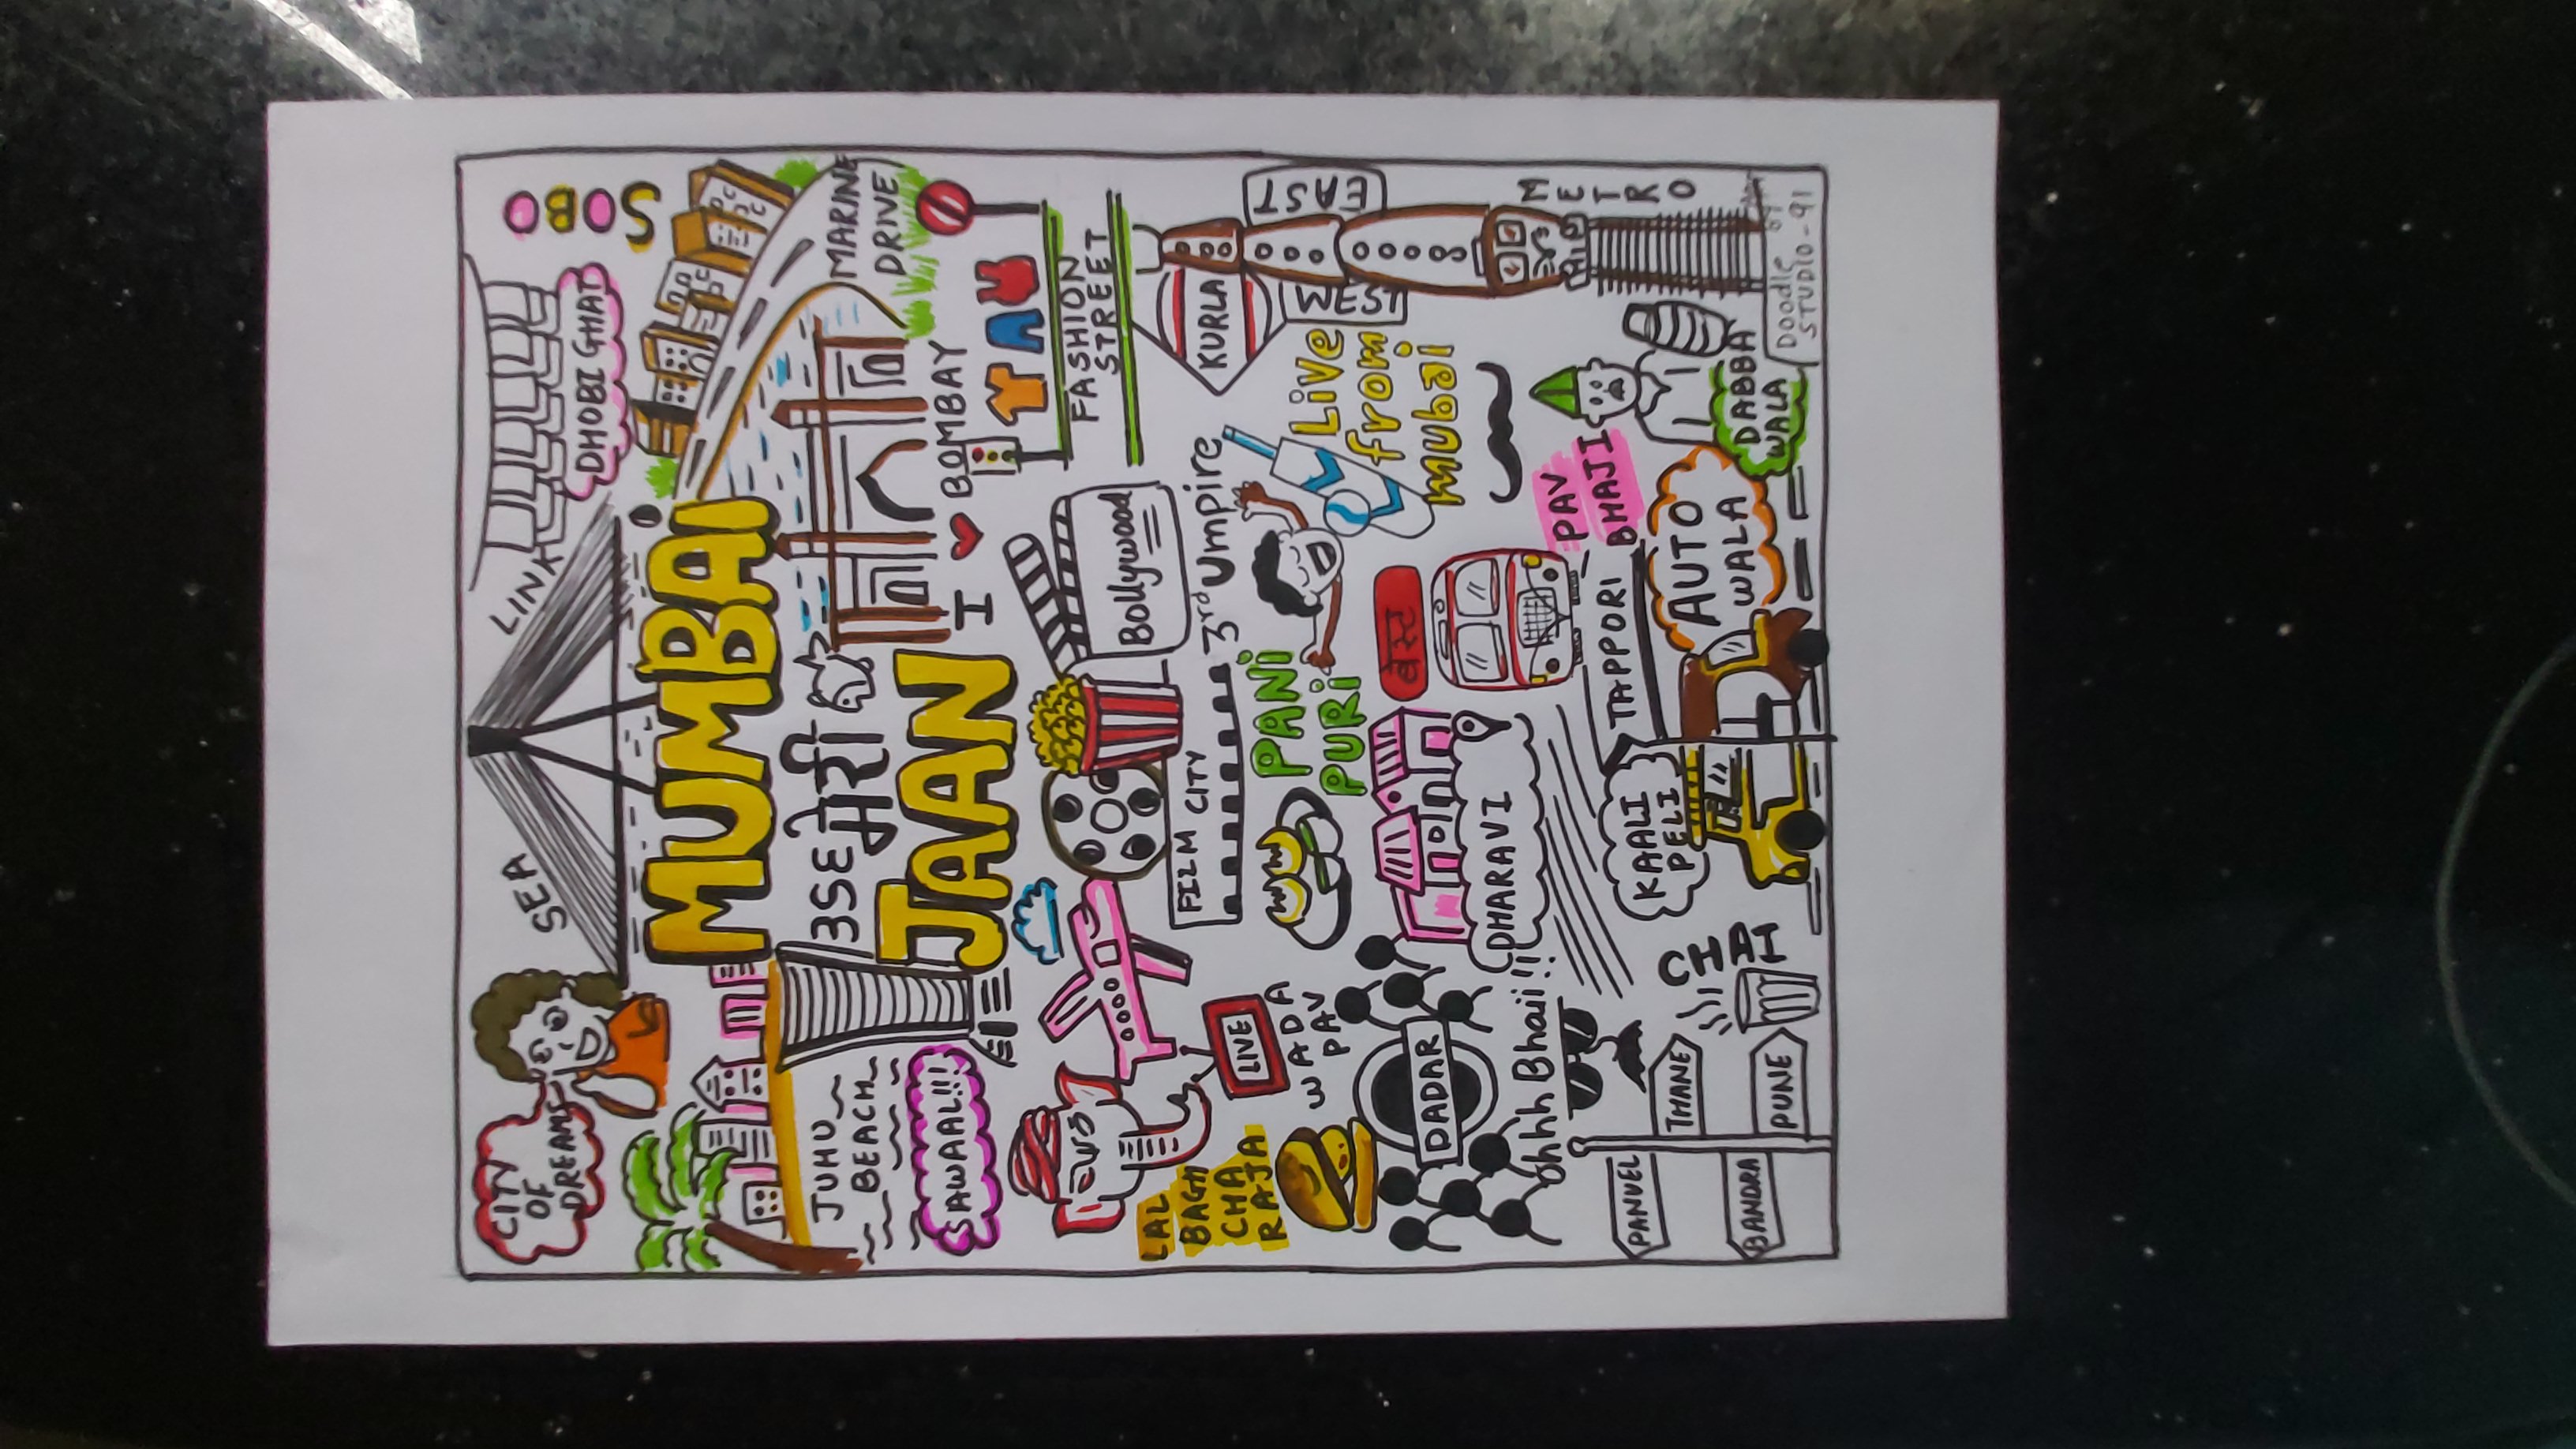 CITY
OF
DREAMS
SEA
LINK
DHOBI GHAT
SOBO
MUMBAI
3SE मेरी
JAAN
MARINE
DRIVE
JUHU
BEACH
SAWAAL!!!
I
BOMBAY
FASHION
STREET
Bollywood
FILM CITY
3rd Umpire
KURLA
EAST
WEST
LAL
BAGH
CHA
RAJA
LIVE
WADA
PAV
PANI
PURI
Live
from
mubai
बेस्ट
DADAR
DHARAVI
ohhh Bhaii!!!
PAV
BHAJI
METRO
TAPPORI
KAALI
PELI
AUTO
WALA
DABBA
WALA
CHAI
PANVEL
THANE
BANDRA
PUNE
Doodle by
STUDIO-91